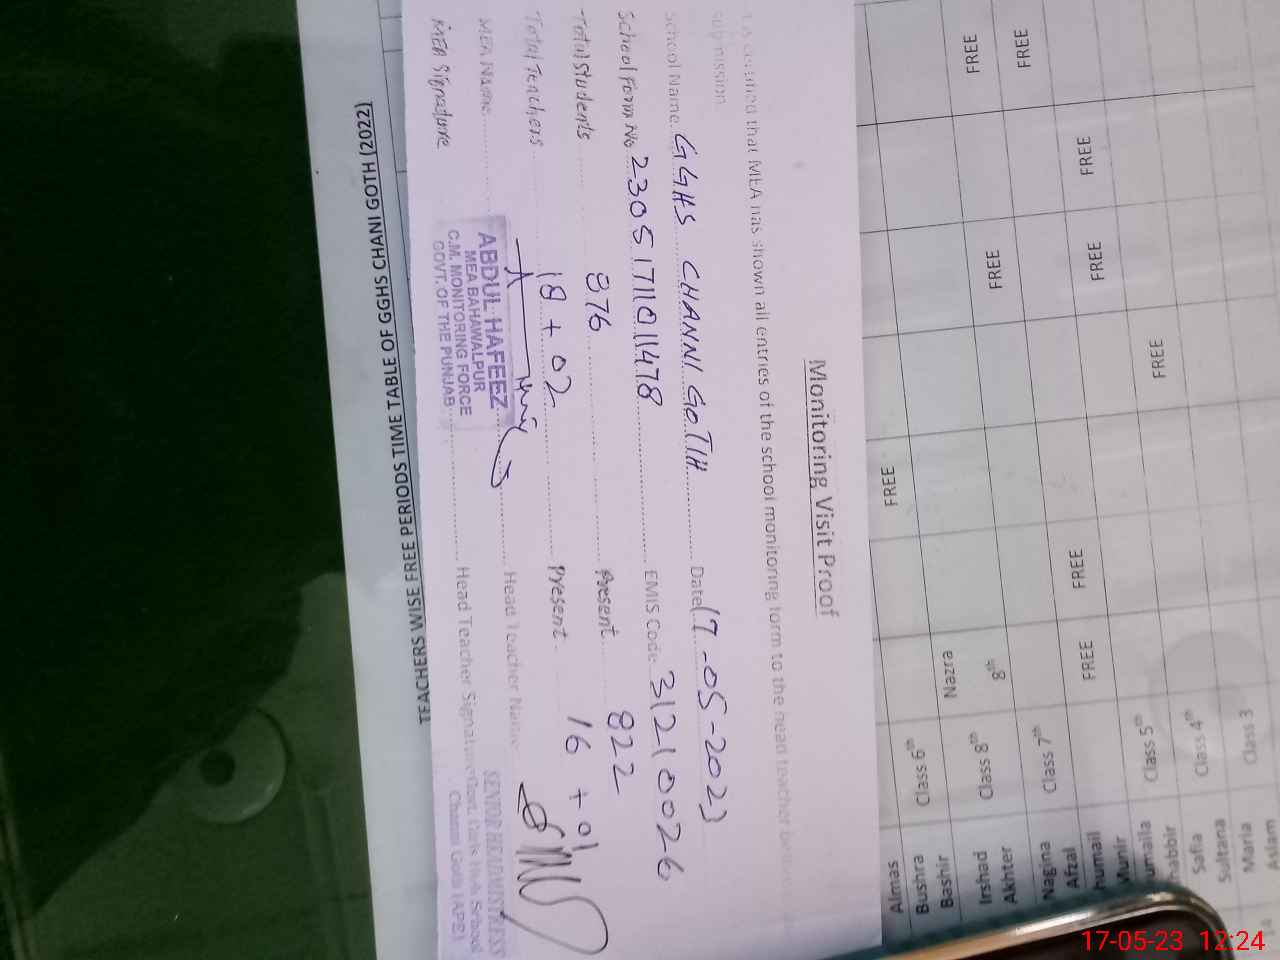 Monitoring Visit Proof
that MEA has shown all entries of the school monitoring form to the head teacher
submission
School Name GGHS CHANNI GOTH Date 17-05-2023
School Form No 2305171101478 EMIS Code 31210026
Total Students 876 Present 822
Total Teachers 18 + 02 Present 16 + 01
MEA Name Head Teacher Name
ABDUL HAFEEZ
MEA BAHAWALPUR
C.M. MONITORING FORCE
GOVT. OF THE PUNJAB
MEA Signature Head Teacher Signature
SENIOR HEADMISTRESS
Govt. Girls High School
Channi Goth (APE)
TEACHERS WISE FREE PERIODS TIME TABLE OF GGHS CHANI GOTH (2022)
Almas FREE
Bushra Bashir Class 6th Nazra
Irshad Akhter Class 8th 8th FREE FREE
Nagina Afzal Class 7th FREE
FREE FREE FREE FREE
Class 5th FREE
Safia Sultana Class 4th
Maria Aslam Class 3
17-05-23 12:24